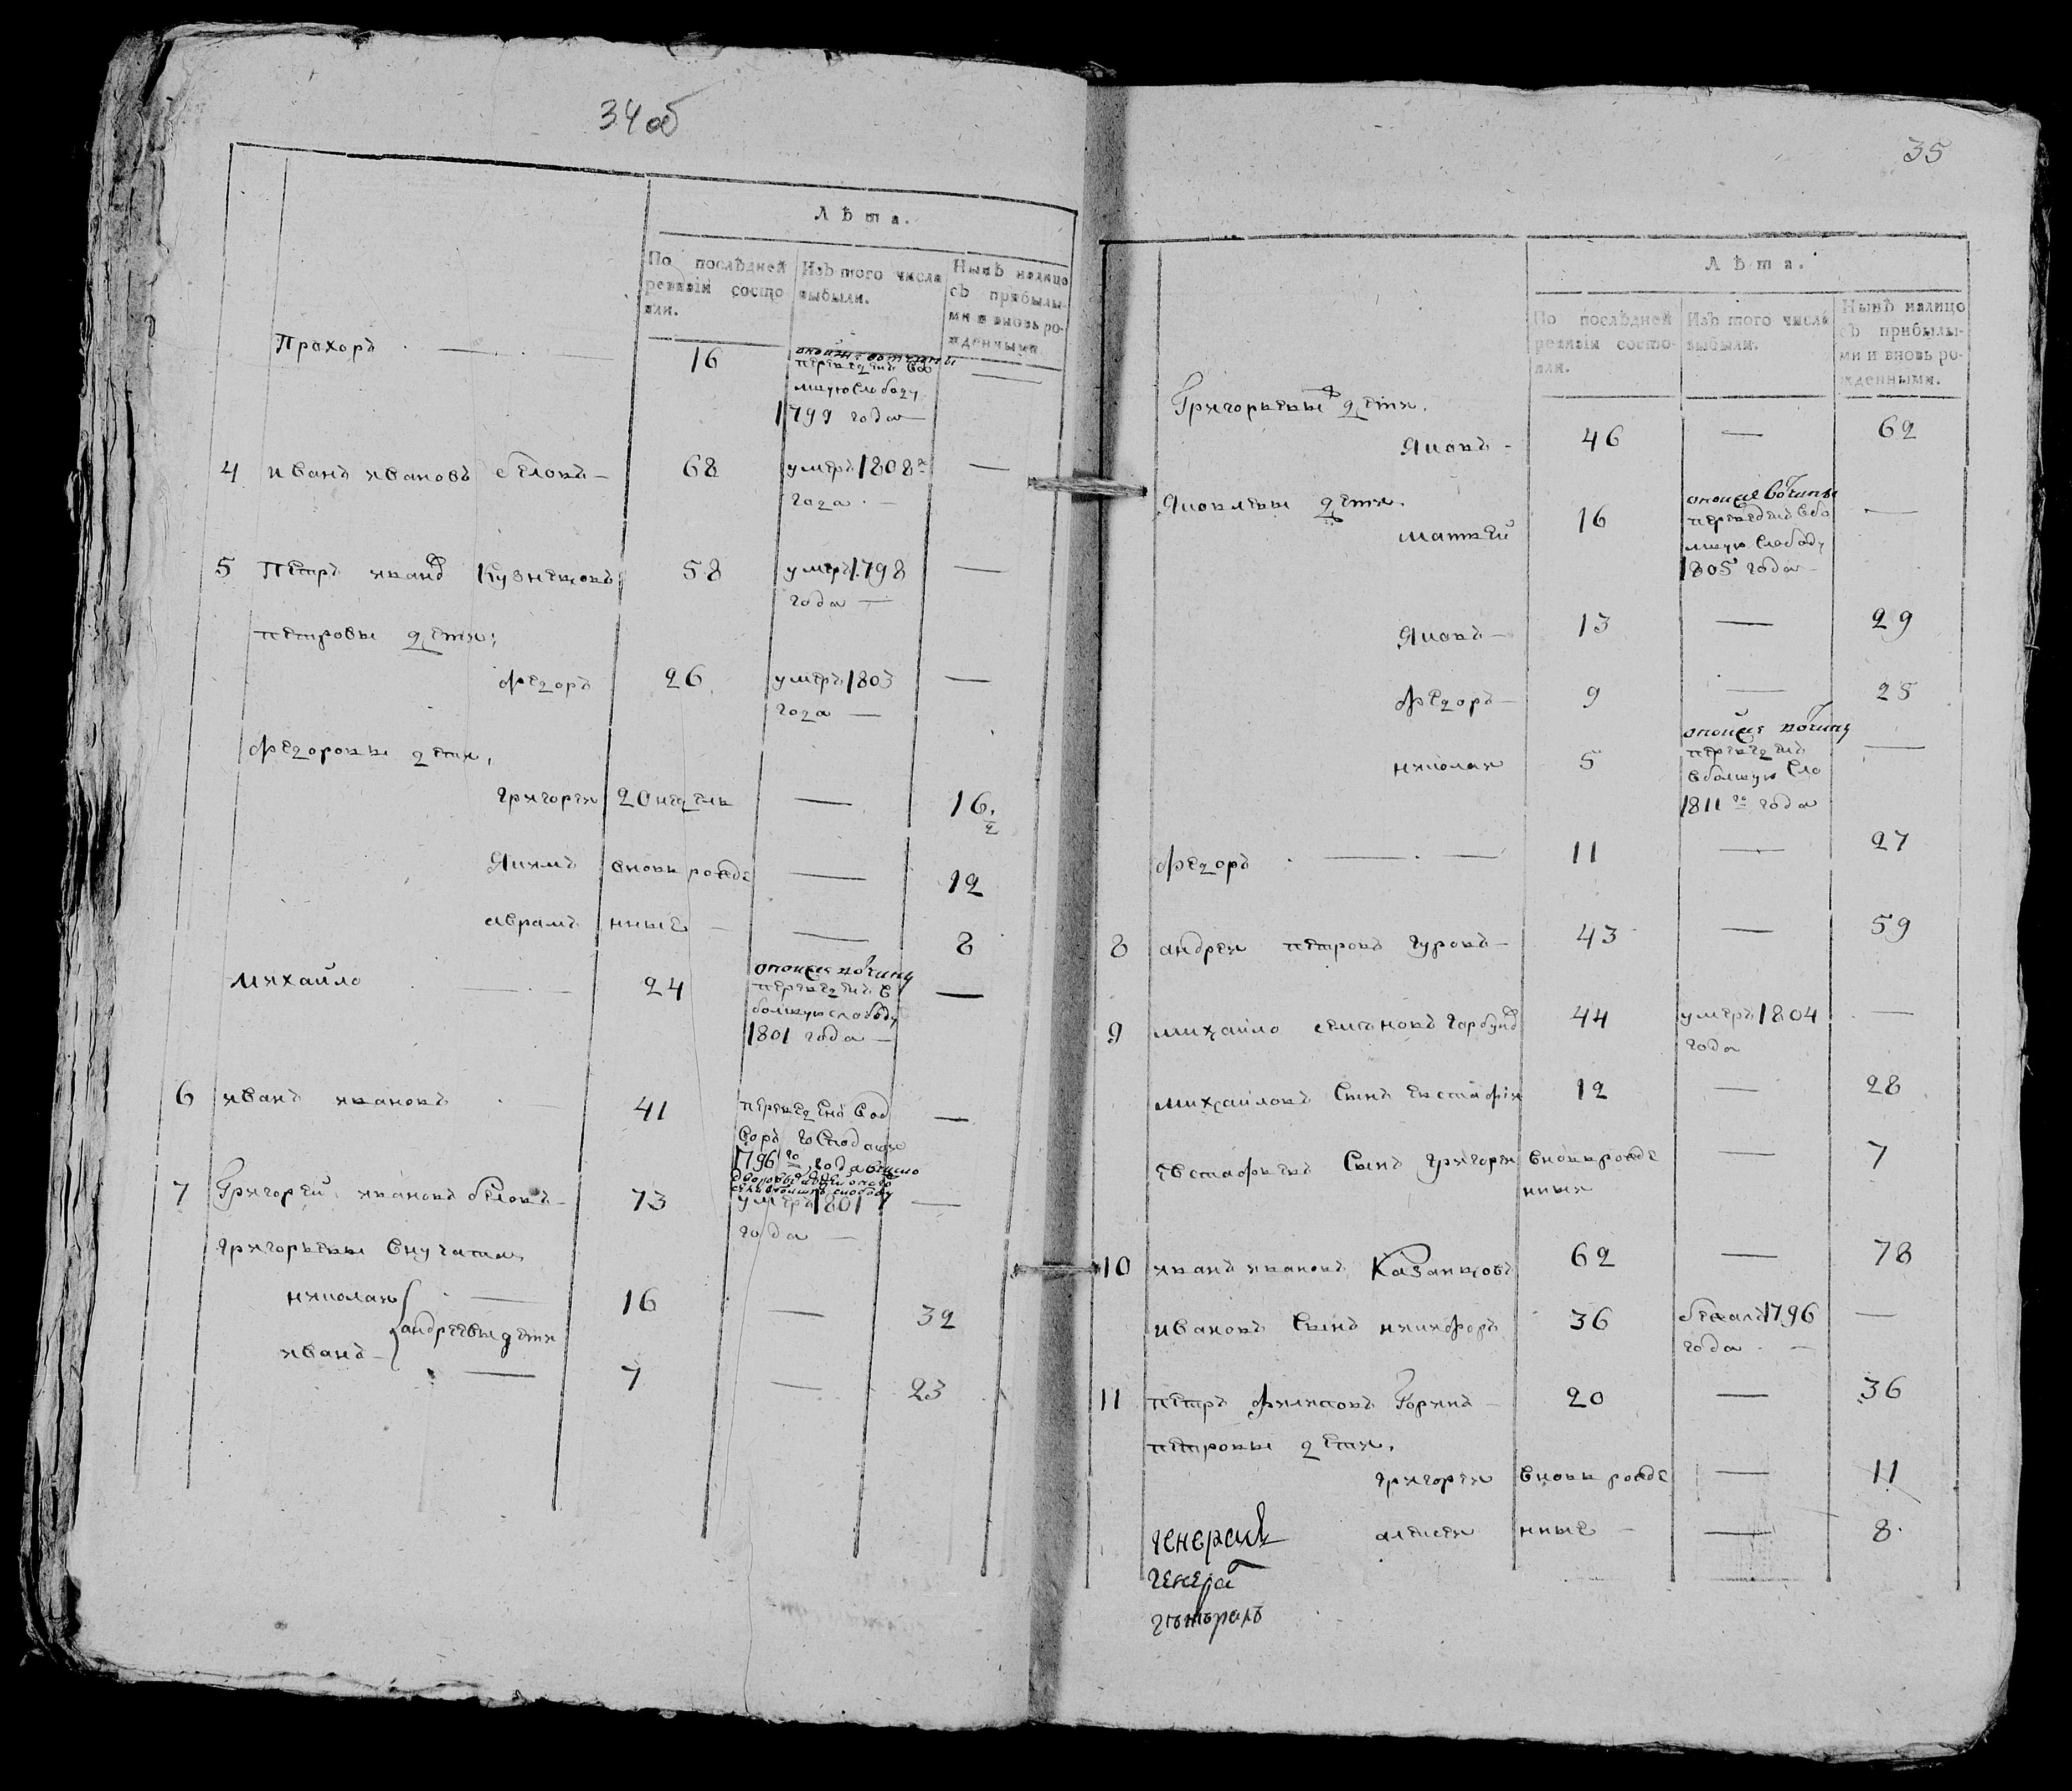 34 об
Лѣта.
По послѣдней ревизіи состо яли.
Изъ того числа выбыли.
Нынѣ налицо съ прибылы- ми и вновь ро- жденными.
Прохоръ — 16
переведенъ в бо
лшую слободу
1799 года —
4 иванъ ивановъ беловъ — 68 умеръ 1808го —
года —
5 Петръ иванов Кузнецовъ 58 умеръ 1798 —
года —
петровы дети;
федоръ 26 умеръ 1803 —
года —
федоровы дети,
григореи 20 недель — 16.½
Якимъ вновь рожде — 12
аврамъ нные — — 8
михайло — 24 опоисе вотчины —
переведенъ в
болшую слободу
1801 года —
6 иванъ ивановъ — 41 переведенъ в од —
воръ господи
1796го года
7 Григореи ивановъ беловъ — 73 умеръ 1801 —
года —
григорьевы внучата
николаи — 16 — 32
андреевы дети
иванъ — 7 — 23
35
Лѣта.
По послѣдней ревизіи состо- яли.
Изъ того числа выбыли.
Нынѣ налицо съ прибылы- ми и вновь ро- жденными.
Григорьевы дети.
Яковъ — 46 — 62
Яковлевы дети.
матвеи 16 опоисе вотчины —
переведенъ в бо
лшую слободу
1805 года —
Яковъ — 13 — 29
федоръ — 9 — 25
николаи 5 опоисе вотчины —
переведенъ
в болшую сло
1811го года
федоръ — 11 — 27
8 андреи петровъ гуровъ — 43 — 59
9 михаило семеновъ горбунов 44 умеръ 1804 —
года
михаиловъ сынъ евстафеи 12 — 28
евстафьевъ сынъ григореи вновь рожде — 7
нныи
10 иванъ ивановъ Казанцовъ 62 — 78
ивановъ сынъ никифоръ 36 бежалъ 1796 —
года —
11 петръ филиповъ Горинъ — 20 — 36
петровы дети.
григореи вновь рожде — 11
алексеи нные — — 8
генералъ
генера
генералъ